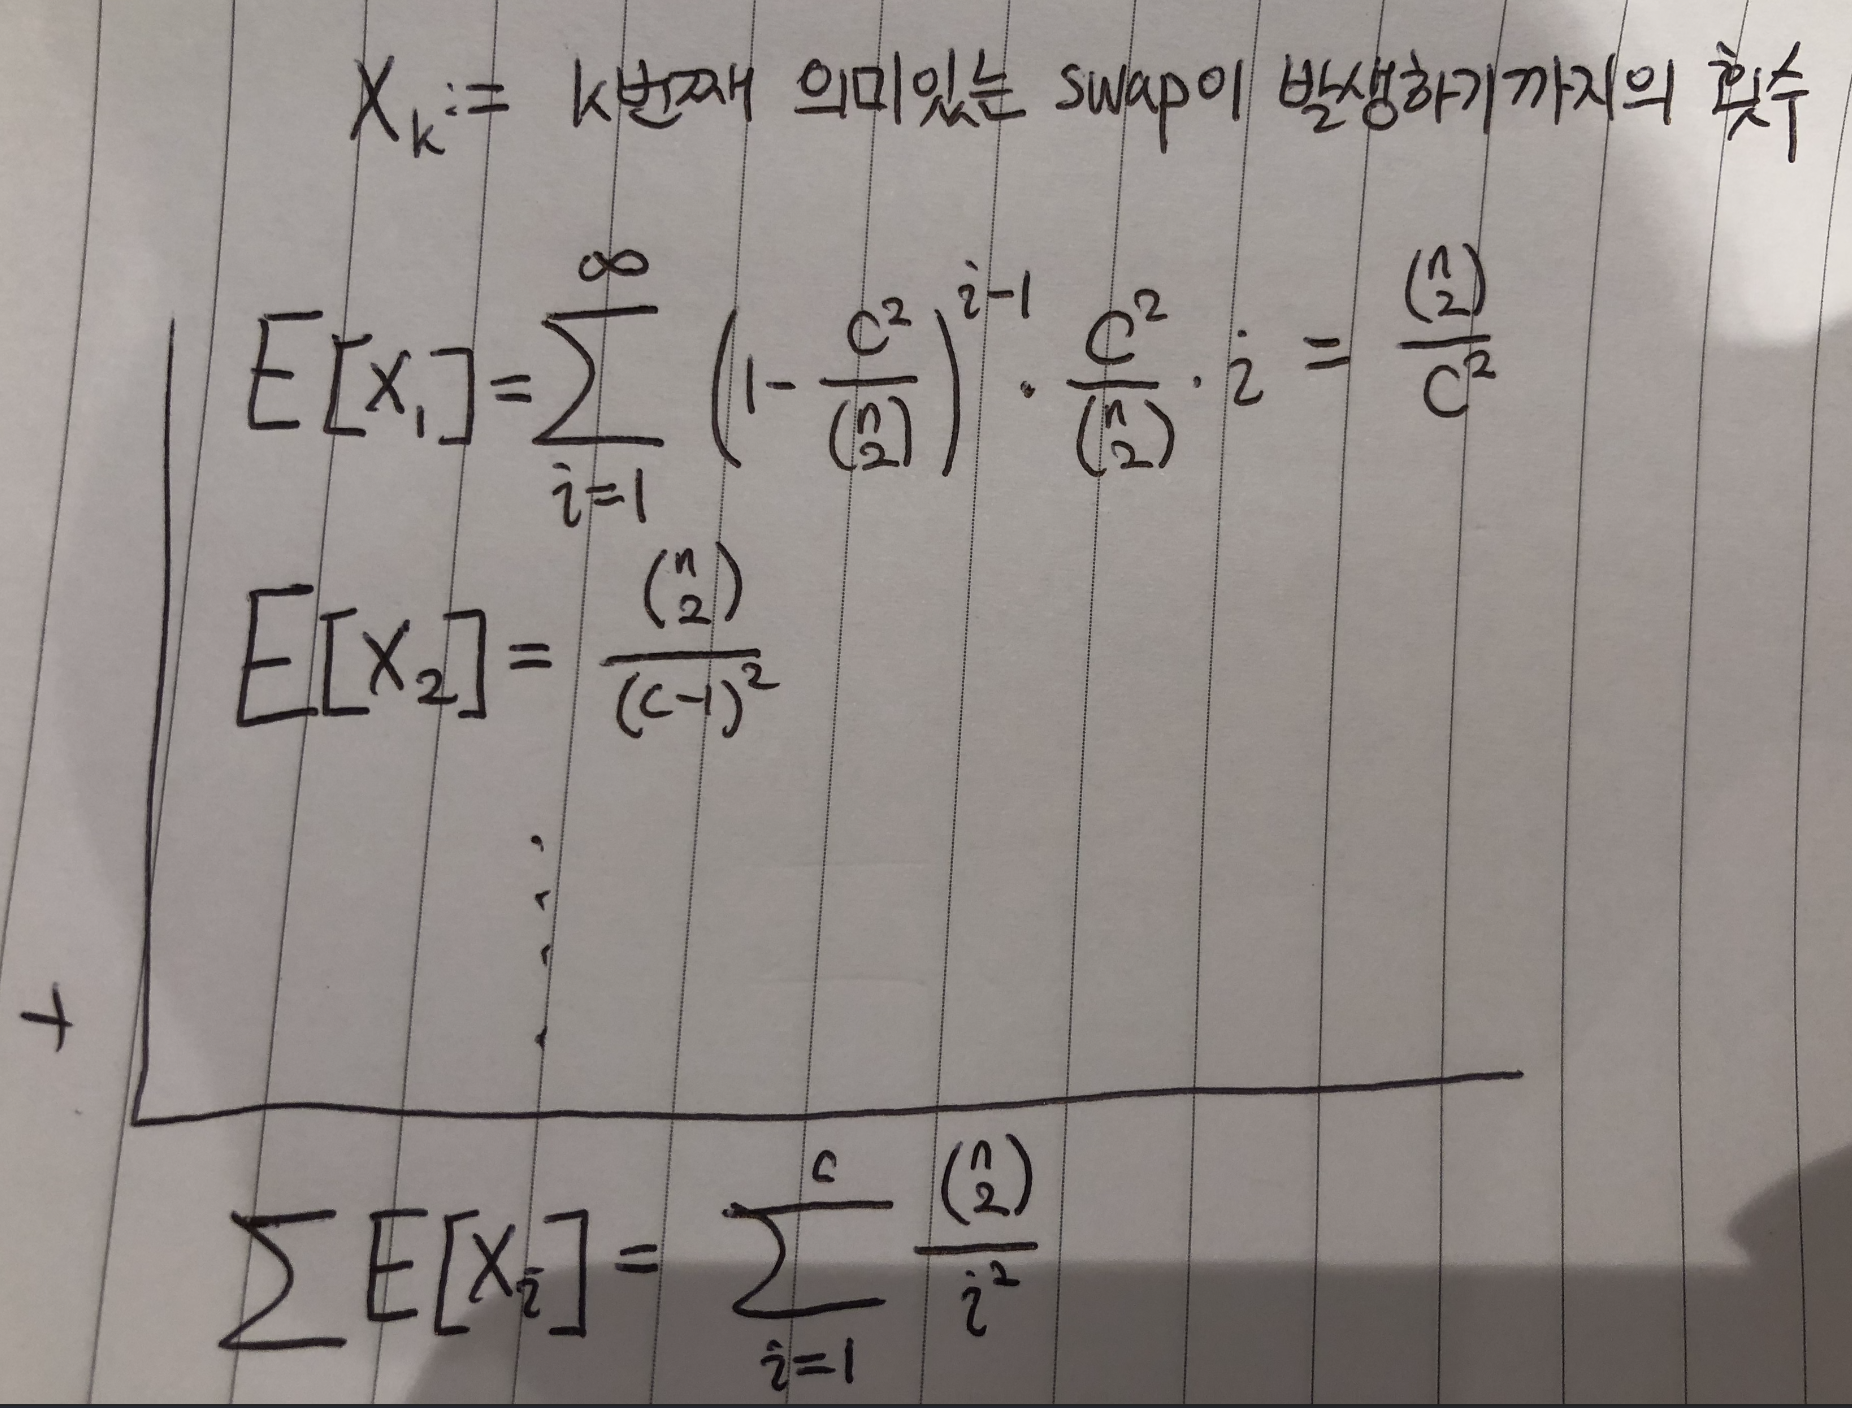 X_k := k번째 의미있는 swap이 발생하기까지의 횟수
E[X_1] = \sum_{i=1}^{\infty} (1 - \frac{C^2}{\binom{n}{2}})^{i-1} \cdot \frac{C^2}{\binom{n}{2}} \cdot i = \frac{\binom{n}{2}}{C^2}
E[X_2] = \frac{\binom{n}{2}}{(C-1)^2}
⋮
+
\sum E[X_i] = \sum_{i=1}^{c} \frac{\binom{n}{2}}{i^2}